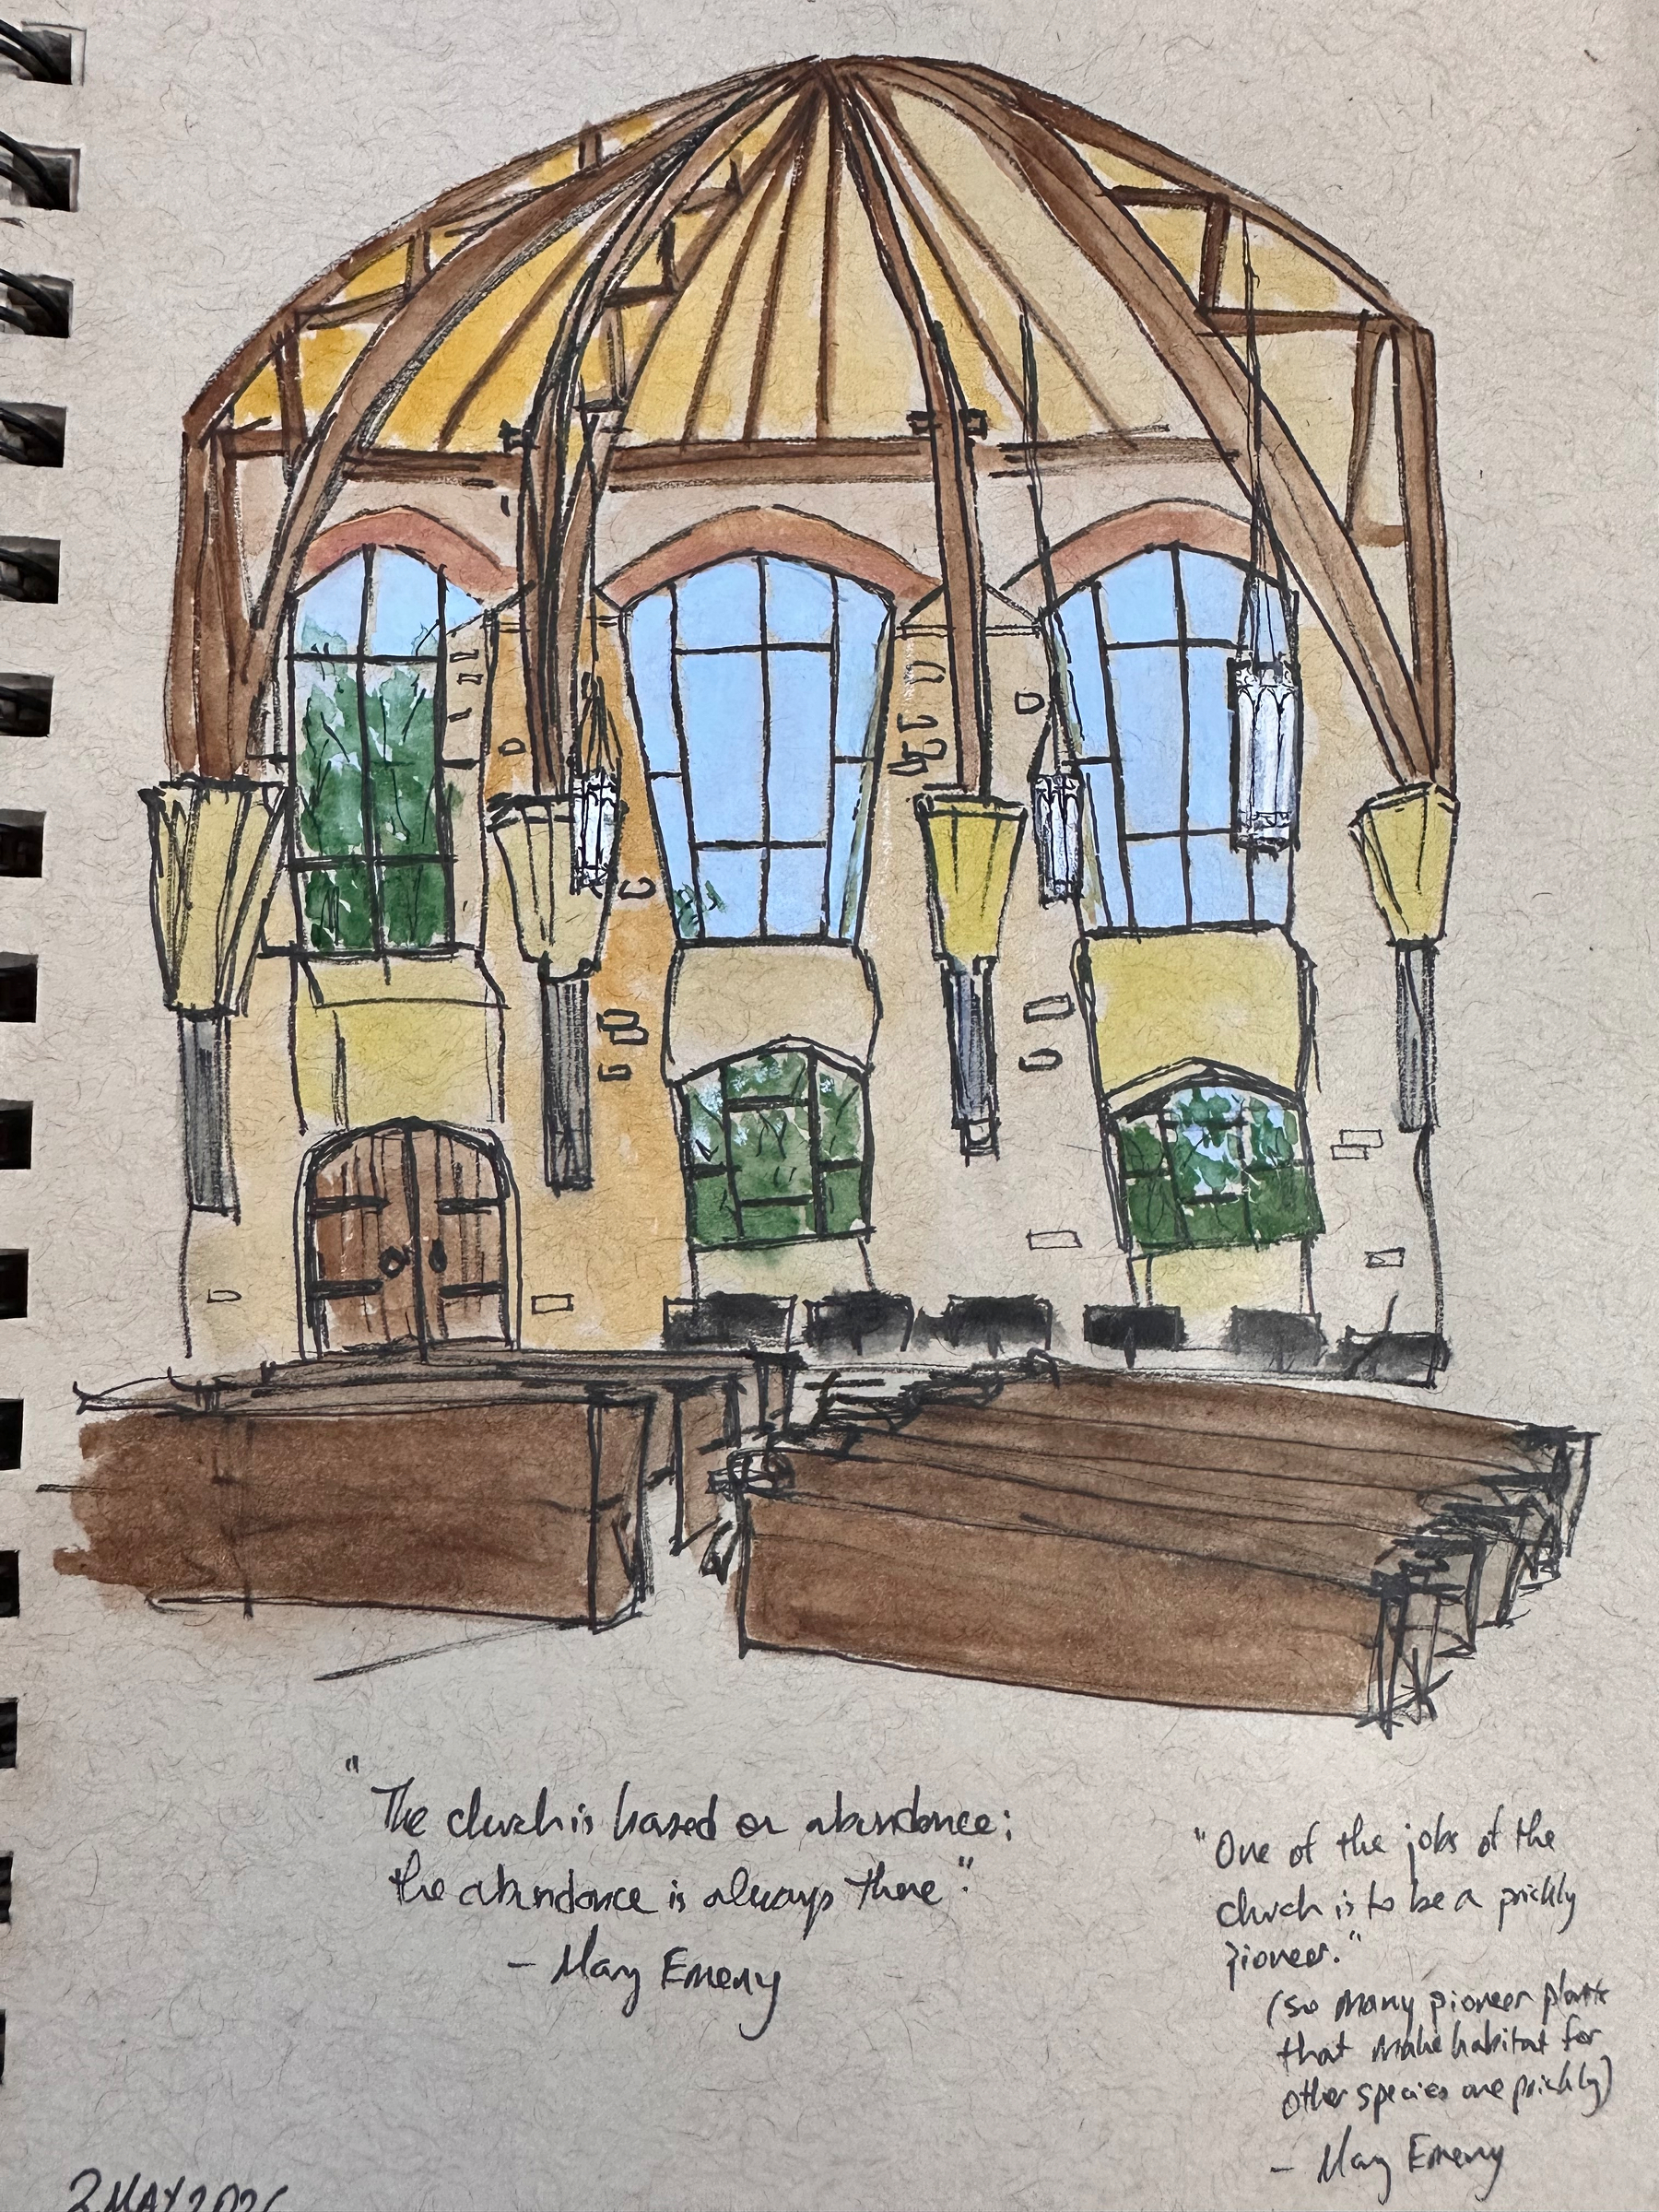 "The church is based on abundance;
the abundance is always there".
- Mary Emeny
"One of the jobs of the
church is to be a prickly
pioneer."
(so many pioneer plants
that make habitat for
other species are prickly)
- Mary Emeny
2 MAY